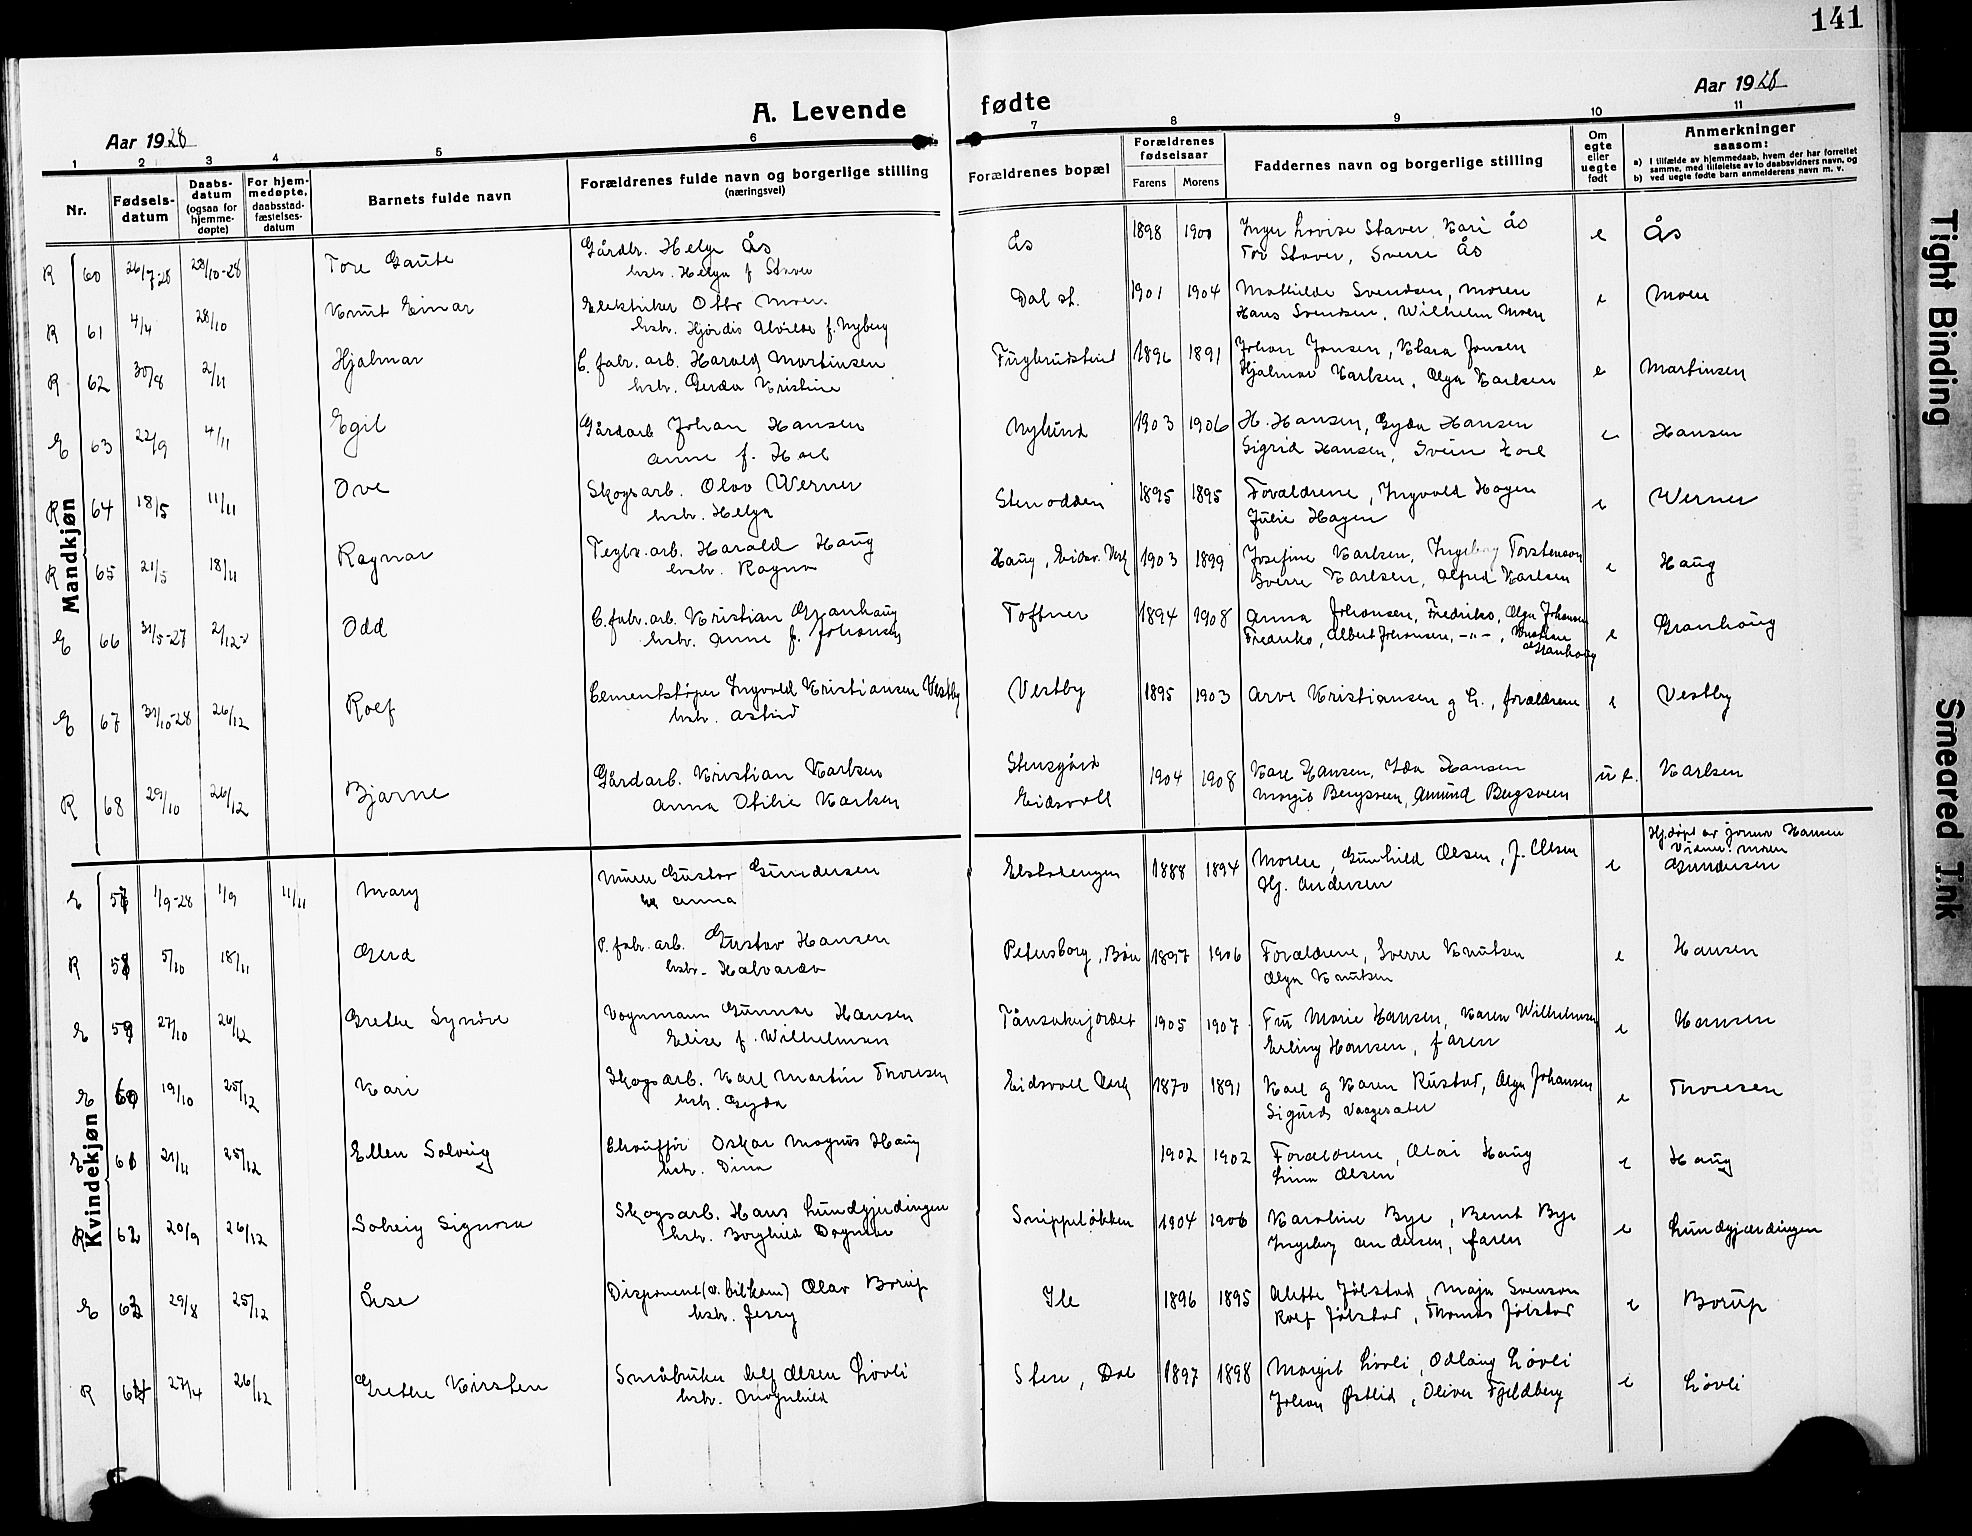 141
A. Levende fødte
Aar 1928
Aar 1928
1 2 3 4 5 6 7 8 9 10 11
Nr.
Fødsels-datum
Daabs-datum (ogsaa for hjemme-døpte)
For hjem-medøpte, daabsstad-fæstelses-datum
Barnets fulde navn
Forældrenes fulde navn og borgerlige stilling (næringsvei)
Forældrenes bopæl
Forældrenes fødselsaar
Farens Morens
Faddernes navn og borgerlige stilling
Om egte eller uegte født
Anmerkninger saasom:
a) I tilfælde av hjemmedaab, hvem der har forrettet samme, med tilføielse av to daabsvidners navn, og
b) ved uegte fødte barn anmelderens navn m. v.
Mandkjøn
R 60 26/7-28 28/10-28 Tore Gaute Gårdbr. Helge Ås Ås 1898 1900 Inger Lovise Staver, Kari Ås e Ås
hstr. Helga f Staver Tor Staver, Sverre Ås
R 61 4/4 28/10 Knut Einar Elektriker Otto Moen Dal st. 1901 1904 Mathilde Svendsen, Moren e Moen
hstr. Hjørdis Alvilde f. Nyberg Hans Svendsen, Wilhelm Moen
R 62 30/8 2/11 Hjalmar C. fabr. arb. Harald Martinsen 1896 1891 Johan Jonsen, Klara Jonsen e Martinsen
hstr. Gerda Kristine Hjalmar Karlsen, Olga Karlsen
E 63 22/9 4/11 Egil Gårdarb Johan Hansen Nylund 1903 1906 H. Hansen, Gyda Hansen e Hansen
Anne f. Hoel Sigrid Hansen, Svein Hoel
R 64 18/5 11/11 Ove Skogsarb. Olav Werner Stenodden 1895 1895 Forældrene, Ingvald Hagen e Werner
hstr. Helga Julie Hagen
R 65 21/5 18/11 Ragnar Teglv. arb. Harald Haug Haug, Eidsv. Verk 1903 1899 Josefine Karlsen, Ingeborg Torstenson e Haug
hstr. Ragna Sverre Karlsen, Alfred Karlsen
E 66 31/5-27 2/12-28 Odd C. fabr. arb. Kristian Granhaug Toftner 1894 1908 Anna Johansen, Fredriks, Olga Johansen e Granhaug
hstr. Anne f. Johansen Fredriks, Albert Johansen, -"-, Kristian Granhaug
E 67 31/10-28 26/12 Rolf Cementstøper Ingvald Kristiansen Vestby Vestby 1895 1903 Arve Kristiansen g H., forældrene e Vestby
hstr. Astrid
R 68 29/10 26/12 Bjarne Gårdarb. Kristian Karlsen Stensgård 1904 1908 Kare Hansen, Ida Hansen u e. Karlsen
Anna Otilie Karlsen Eidsvoll Margit Bergsveen, Amund Bergsveen
Kvindekjøn
E 57 1/9-28 1/9 11/11 Mary Murer Gustav Gundersen Elstadengen 1888 1894 Moren, Gunhild Olsen, J. Olsen e Hj. døpt av Jonna Hansen
h Anna Hj. Andersen Vidne: moren
Gundersen
R 58 5/10 18/11 Gerd P. fabr. arb. Gustav Hansen Petersborg, Bøn 1897 1906 Forældrene, Sverre Knutsen e Hansen
hstr. Halvarda Olga Knutsen
E 59 27/10 26/12 Grethe Synøve Vognmann Gunnar Hansen 1905 1907 Fru Marie Hansen, Karen Wilhelmsen e Hansen
Elise f. Wilhelmsen Erling Hansen, faren
E 60 19/10 25/12 Kari Skogsarb. Karl Martin Thoresen Eidsvoll Verk 1870 1891 Karl g Karen Rustad, Olga Johansen e Thoresen
hstr. Gyda Sigurd Vaagesater
E 61 21/11 25/12 Ellen Solveig Chauffør Oskar Magnus Haug 1902 1902 Forældrene, Olai Haug e Haug
hstr. Dina Lina Olsen
R 62 20/9 26/12 Solveig Signora Skogsarb. Hans Lundgjerdingen Snippeløkken 1904 1906 Karoline Bye, Bernt Bye e Lundgjerdingen
hstr. Borghild Dagmar Ingeborg Andersen, faren
E 63 29/8 25/12 Åse Disponent (v. bilkom) Olav Borup Ile 1896 1895 Alette Jølstad, Maja Svenson e Borup
hstr. Jessy Rolf Jølstad, Thomas Jølstad
R 64 27/4 26/12 Grethe Kirsten Småbruker Alf Olsen Løvli Sten, Dal 1897 1898 Margit Løvli, Odlaug Løvli e Løvli
hstr. Magnhild Johan Østlid, Oliver Fjeldberg
Tight Binding
Smeared Ink